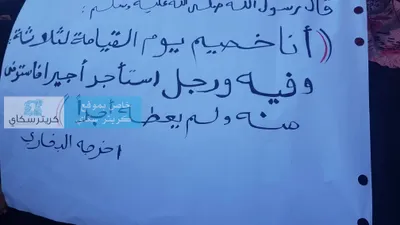 قال رسول الله صلى الله عليه وسلم:
(أنا خصيم يوم القيامة لثلاثة:
وفيه ورجل استأجر أجيرا فاستوفى
منه ولم يعطه أجراً)
اخرجه البخاري
خاص بموقع
كريتر سكاي
كريتر سكاي